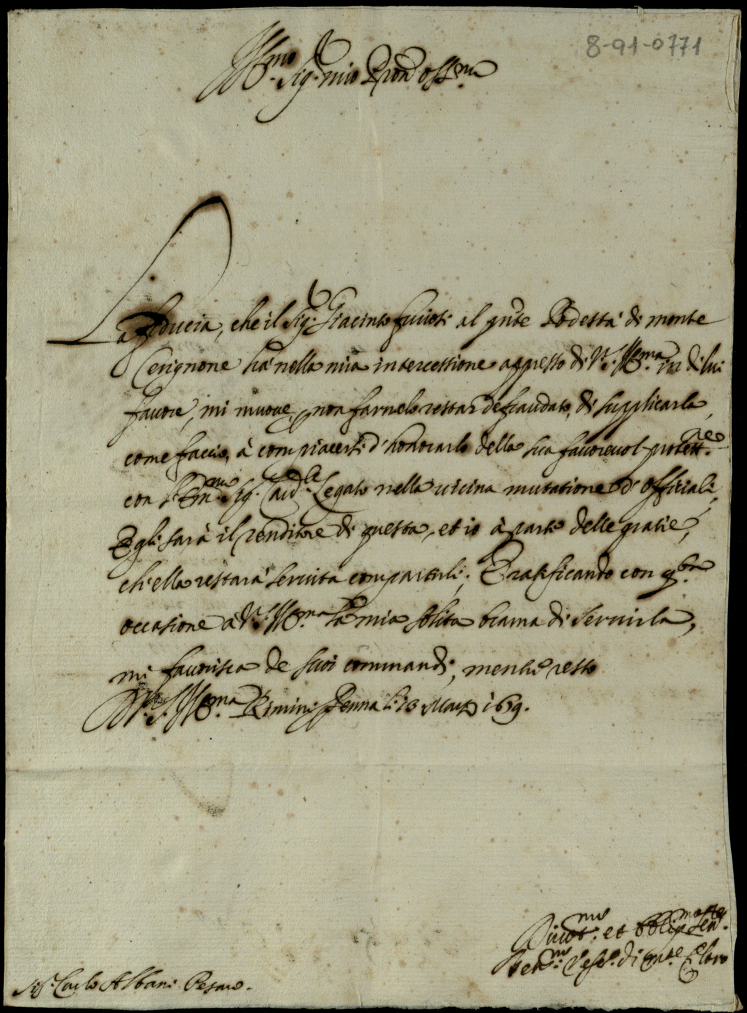 8-91-0771
Ill.mo Sig. mio Pron Oss.mo
La fiducia, che il Sig. Giacinto al pnte Podestà di monte
Cerignone hà nella mia intercessione appresso di V.S. Ill.ma in di lui
favore, mi muove, non farnelo restar defraudato, di supplicarla,
come faccio, à compiacersi d'honorarlo della sua favorevol protett.ne
con l'Em.mo Sig. Card.le Legato nella vicina mutatione d'Officiali,
Egli sarà il di questa, et io à parte delle gratie,
ch'ella restarà servita compartirli; E ratificando con q.sta
occasione à V.S. Ill.ma la mia solita brama di servirla,
mi favorisca de suoi commandi, mentre resto
Di V.S. Ill.ma Rimini Penna li 13
Divot.mo et oblig.mo Ser.
di
Sig. Carlo Albani Pesaro.